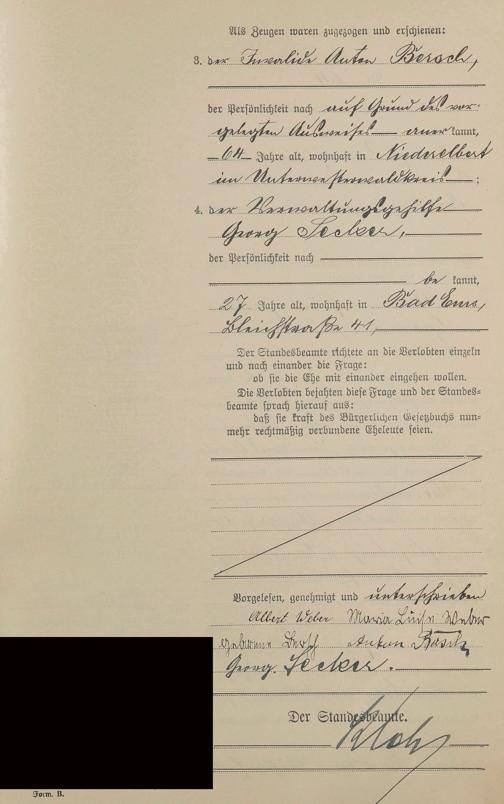 Als Zeugen waren zugezogen und erschienen:
3. der Invalide Anton Bersch,
der Persönlichkeit nach auf Grund des vor-
gelegten Ausweises anerkannt,
64 Jahre alt, wohnhaft in Niederelbert
im Unterwesterwaldkreis;
4. der Verwaltungsgehilfe
Georg Secker,
der Persönlichkeit nach
bekannt,
27 Jahre alt, wohnhaft in Bad Ems,
Bleichstraße 41,
Der Standesbeamte richtete an die Verlobten einzeln
und nach einander die Frage:
ob sie die Ehe mit einander eingehen wollen.
Die Verlobten bejahten diese Frage und der Standes-
beamte sprach hierauf aus:
daß sie kraft des Bürgerlichen Gesetzbuchs nun-
mehr rechtmäßig verbundene Eheleute seien.
Vorgelesen, genehmigt und unterschrieben
Albert Weber Maria Luise Weber
geborene Bersch Anton Bersch
Georg. Secker.
Der Standesbeamte.
Form. B.